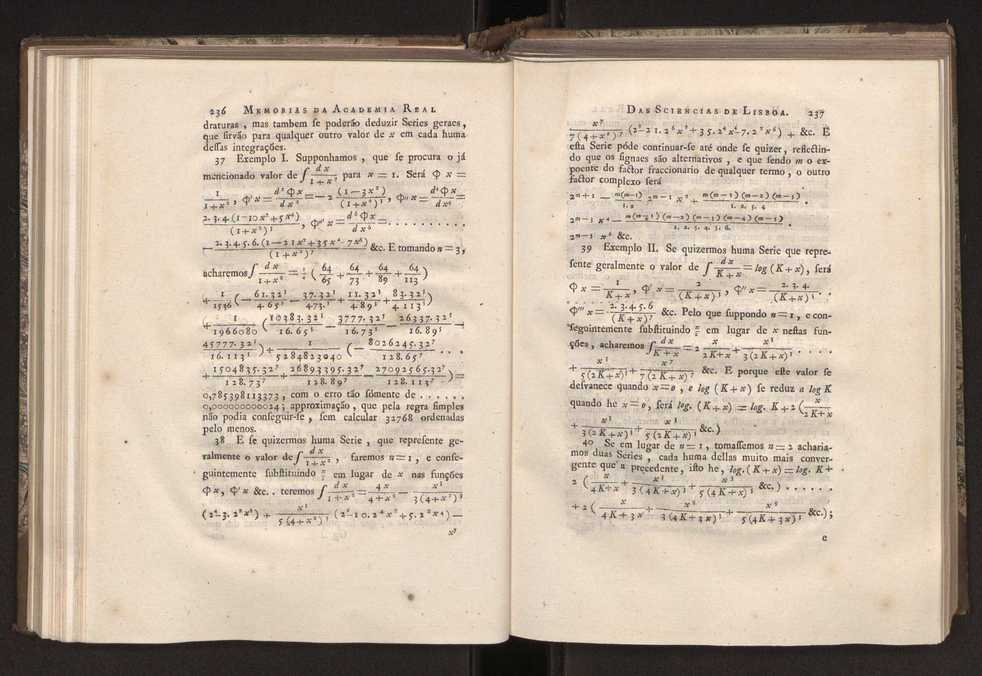 236 MEMORIAS DA ACADEMIA REAL
draturas , mas tambem ſe poderão deduzir Series geraes,
que ſirvão para qualquer outro valor de x em cada huma
deſſas integrações.
37 Exemplo I. Supponhamos , que ſe procura o já
mencionado valor de ∫ dx/(1+x²) para x = 1. Será Φ x =
1/(1+x²), Φ′ x = d²Φx/dx² = −2 (1−3x²)/(1+x²)³, Φ″ x = d⁴Φx/dx⁴ =
2.3.4(1−10x²+5x⁴)/(1+x²)⁵, Φ‴ x = d⁶Φx/dx⁶ = . . . . . . . . . .
−2.3.4.5.6.(1−21x²+35x⁴−7x⁶)/(1+x²)⁷ &c. E tomando n = 3,
acharemos ∫ dx/(1+x²) = ¼ (64/65 + 64/73 + 64/89 + 64/113)
+ 1/1536 (− 61.32³/4.65³ − 37.32³/4.73³ + 11.32³/4.89³ + 83.32³/4.113³)
+ 1/1966080 (10383.32⁵/16.65⁵ − 3777.32⁵/16.73⁵ − 26337.32⁵/16.89⁵ +
45777.32⁵/16.113⁵) + 1/5284823040 (− 8026245.32⁷/128.65⁷ . . .
+ 1504835.32⁷/128.73⁷ + 26893395.32⁷/128.89⁷ − 27092565.32⁷/128.113⁷) =
0,785398113373, com o erro tão ſómente de . . . . . .
0,000000000024; approximação , que pela regra ſimples
não podia conſeguir-ſe , ſem calcular 32768 ordenadas
pelo menos.
38 E ſe quizermos huma Serie , que repreſente ge-
ralmente o valor de ∫ dx/(1+x²), faremos n = 1, e conſe-
guintemente ſubſtituindo x/2 em lugar de x nas funções
Φ x, Φ′ x &c. . teremos ∫ dx/(1+x²) = 4x/(4+x²) − x³/3(4+x²)³
(2⁴−3.2²x²) + x⁵/5(4+x²)⁵ (2⁶−10.2⁴x²+5.2²x⁴) —
x⁷
DAS SCIENCIAS DE LISBOA. 237
x⁷/7(4+x²)⁷ (2⁸−21.2⁶x²+35.2⁴x⁴−7.2²x⁶) + &c. E
eſta Serie póde continuar-ſe até onde ſe quizer, reflectin-
do que os ſignaes são alternativos , e que ſendo m o ex-
poente do factor fraccionario de qualquer termo , o outro
factor complexo ſerá
2ᵐ⁺¹ − m(m−1)/1.2 2ᵐ⁻¹ x² + m(m−1)(m−2)(m−3)/1.2.3.4 .
2ᵐ⁻³ x⁴ − m(m−1)(m−2)(m−3)(m−4)(m−5)/1.2.3.4.5.6. .
2ᵐ⁻⁵ x⁶ &c.
39 Exemplo II. Se quizermos huma Serie que repre-
ſente geralmente o valor de ∫ dx/(K+x) = log (K + x), ſerá
Φ x = 1/(K+x), Φ′ x = 2/(K+x)³, Φ″ x = 2.3.4/(K+x)⁵ .
Φ‴ x = 2.3.4.5.6/(K+x)⁷ &c. Pelo que ſuppondo n = 1, e con-
ſeguintemente ſubſtituindo x/2 em lugar de x neſtas fun-
ções, acharemos ∫ dx/(K+x) = 2 x/(2K+x) + x³/3(2K+x)³ . . . .
+ x⁵/5(2K+x)⁵ + x⁷/7(2K+x)⁷ &c. E porque eſte valor ſe
deſvanece quando x = 0 , e log (K + x) ſe reduz a log K
quando he x = 0, ſerá log. (K + x) = log. K + 2 (x/(2K+x)
+ x³/3(2K+x)³ + x⁵/5(2K+x)⁵ &c.)
40 Se em lugar de n = 1 , tomaſſemos n = 2 acharia-
mos duas Series , cada huma dellas muito mais conver-
gente que a precedente, iſto he, log. (K + x) = log. K +
2 (x/(4K+x) + x³/3(4K+x)³ + x⁵/5(4K+x)⁵ &c.) . . . . . .
+ 2 (x/(4K+3x) + x³/3(4K+3x)³ + x⁵/5(4K+3x)⁵ &c.);
e